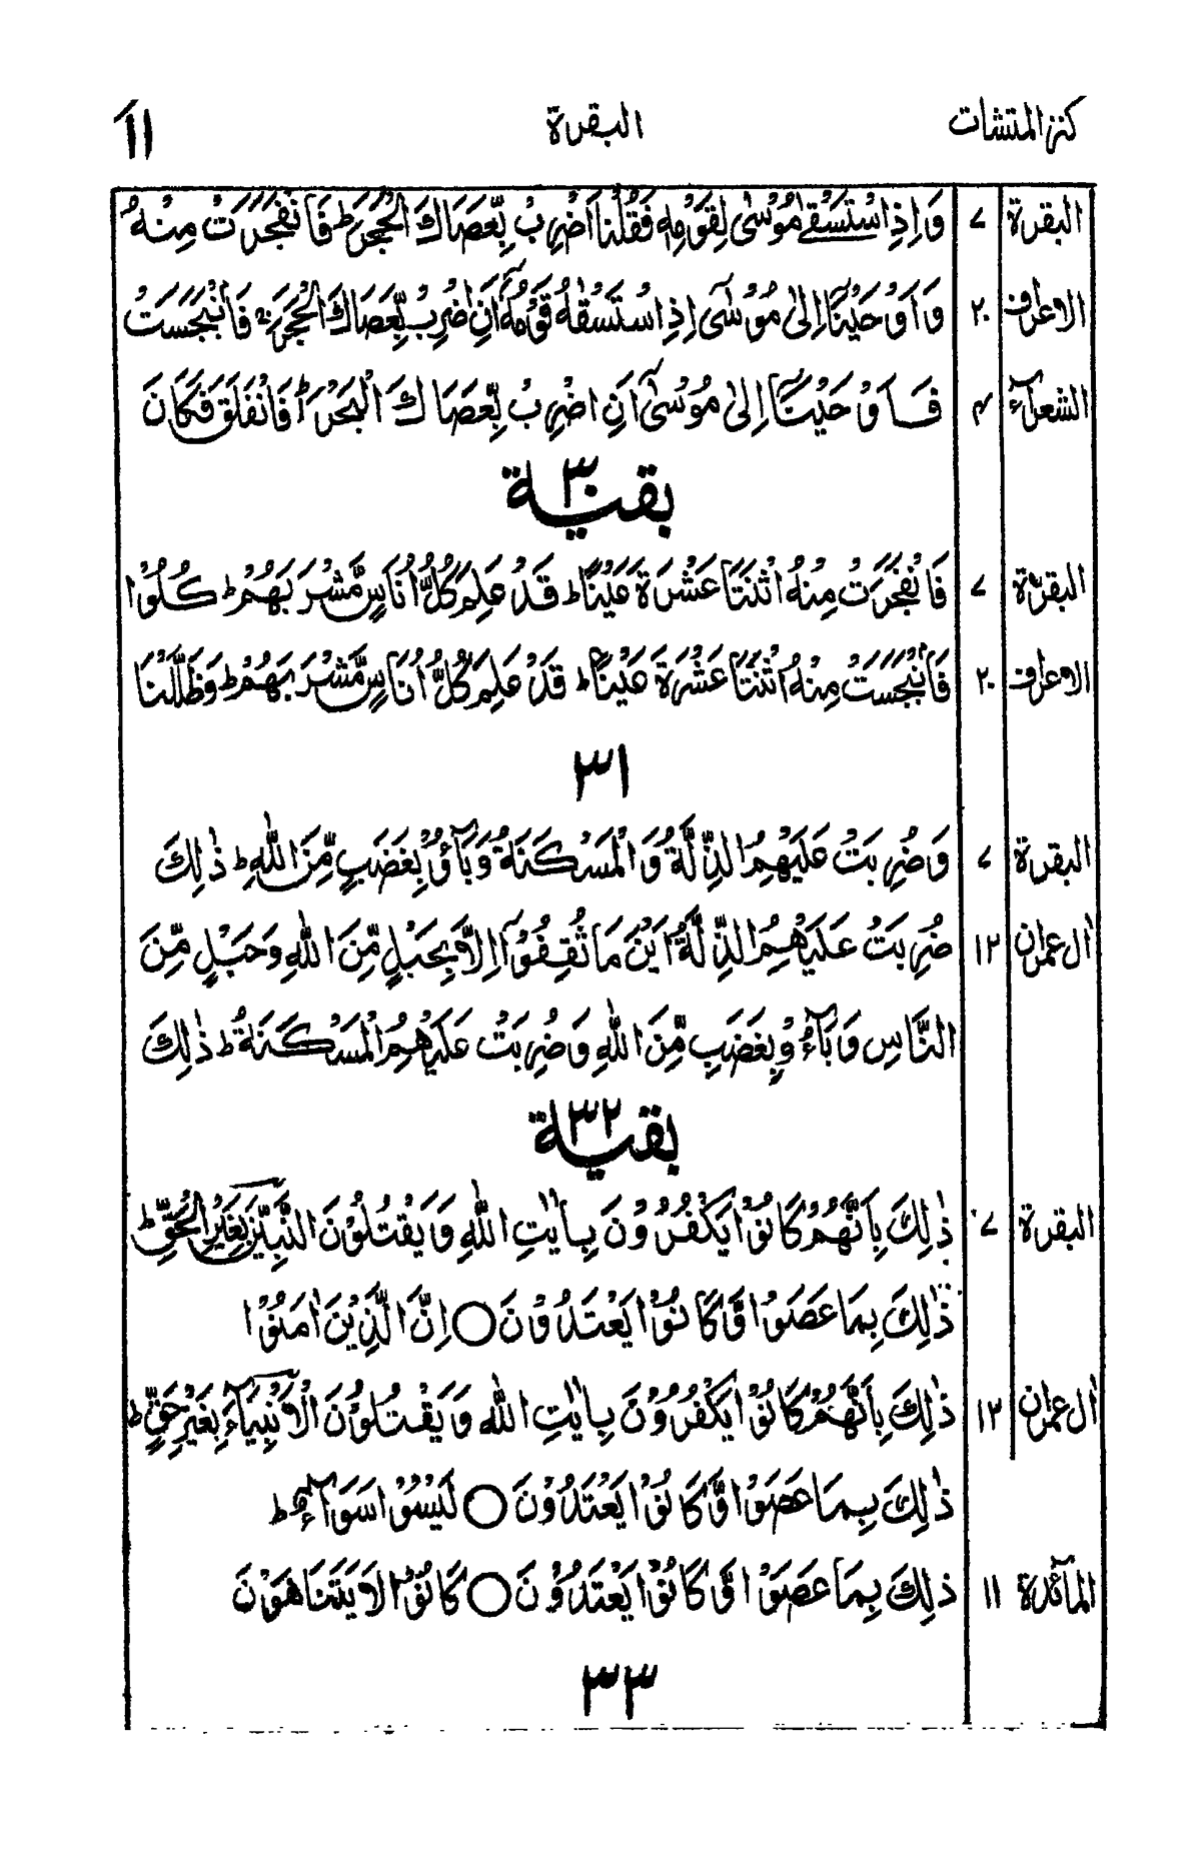 كنز المتشابهات البقرة ۱۱
البقرة ۷ وَاِذِ اسْتَسْقٰى مُوْسٰى لِقَوْمِهٖ فَقُلْنَا اضْرِبْ بِّعَصَاكَ الْحَجَرَ ؕ فَانْفَجَرَتْ مِنْهُ
الاعراف ۲۰ وَاَوْحَيْنَآ اِلٰى مُوْسٰٓى اِذِ اسْتَسْقٰىهُ قَوْمُهٗٓ اَنِ اضْرِبْ بِّعَصَاكَ الْحَجَرَ ۚ فَانْۢبَجَسَتْ
الشعرآء ۴ فَاَوْحَيْنَآ اِلٰى مُوْسٰٓى اَنِ اضْرِبْ بِّعَصَاكَ الْبَحْرَ ؕ فَانْفَلَقَ فَكَانَ
بقية ۳۰
البقرة ۷ فَانْفَجَرَتْ مِنْهُ اثْنَتَا عَشْرَةَ عَيْنًا ؕ قَدْ عَلِمَ كُلُّ اُنَاسٍ مَّشْرَبَهُمْ ؕ كُلُوْا
الاعراف ۲۰ فَانْۢبَجَسَتْ مِنْهُ اثْنَتَا عَشْرَةَ عَيْنًا ؕ قَدْ عَلِمَ كُلُّ اُنَاسٍ مَّشْرَبَهُمْ ؕ وَظَلَّلْنَا
۳۱
البقرة ۷ وَضُرِبَتْ عَلَيْهِمُ الذِّلَّةُ وَالْمَسْكَنَةُ وَبَآؤُ بِغَضَبٍ مِّنَ اللّٰهِ ؕ ذٰلِكَ
اٰل عمران ۱۲ ضُرِبَتْ عَلَيْهِمُ الذِّلَّةُ اَيْنَ مَا ثُقِفُوْٓا اِلَّا بِحَبْلٍ مِّنَ اللّٰهِ وَحَبْلٍ مِّنَ
النَّاسِ وَبَآءُوْ بِغَضَبٍ مِّنَ اللّٰهِ وَضُرِبَتْ عَلَيْهِمُ الْمَسْكَنَةُ ؕ ذٰلِكَ
بقية ۳۲
البقرة ۷ ذٰلِكَ بِاَنَّهُمْ كَانُوْا يَكْفُرُوْنَ بِاٰيٰتِ اللّٰهِ وَيَقْتُلُوْنَ النَّبِيّٖنَ بِغَيْرِ الْحَقِّ ؕ
ذٰلِكَ بِمَا عَصَوْا وَّكَانُوْا يَعْتَدُوْنَ ○ اِنَّ الَّذِيْنَ اٰمَنُوْا
اٰل عمران ۱۲ ذٰلِكَ بِاَنَّهُمْ كَانُوْا يَكْفُرُوْنَ بِاٰيٰتِ اللّٰهِ وَيَقْتُلُوْنَ الْاَنْۢبِيَآءَ بِغَيْرِ حَقٍّ ؕ
ذٰلِكَ بِمَا عَصَوْا وَّكَانُوْا يَعْتَدُوْنَ ○ لَيْسُوْا سَوَآءً ؕ
المآئدة ۱۱ ذٰلِكَ بِمَا عَصَوْا وَّكَانُوْا يَعْتَدُوْنَ ○ كَانُوْا لَا يَتَنَاهَوْنَ
۳۳